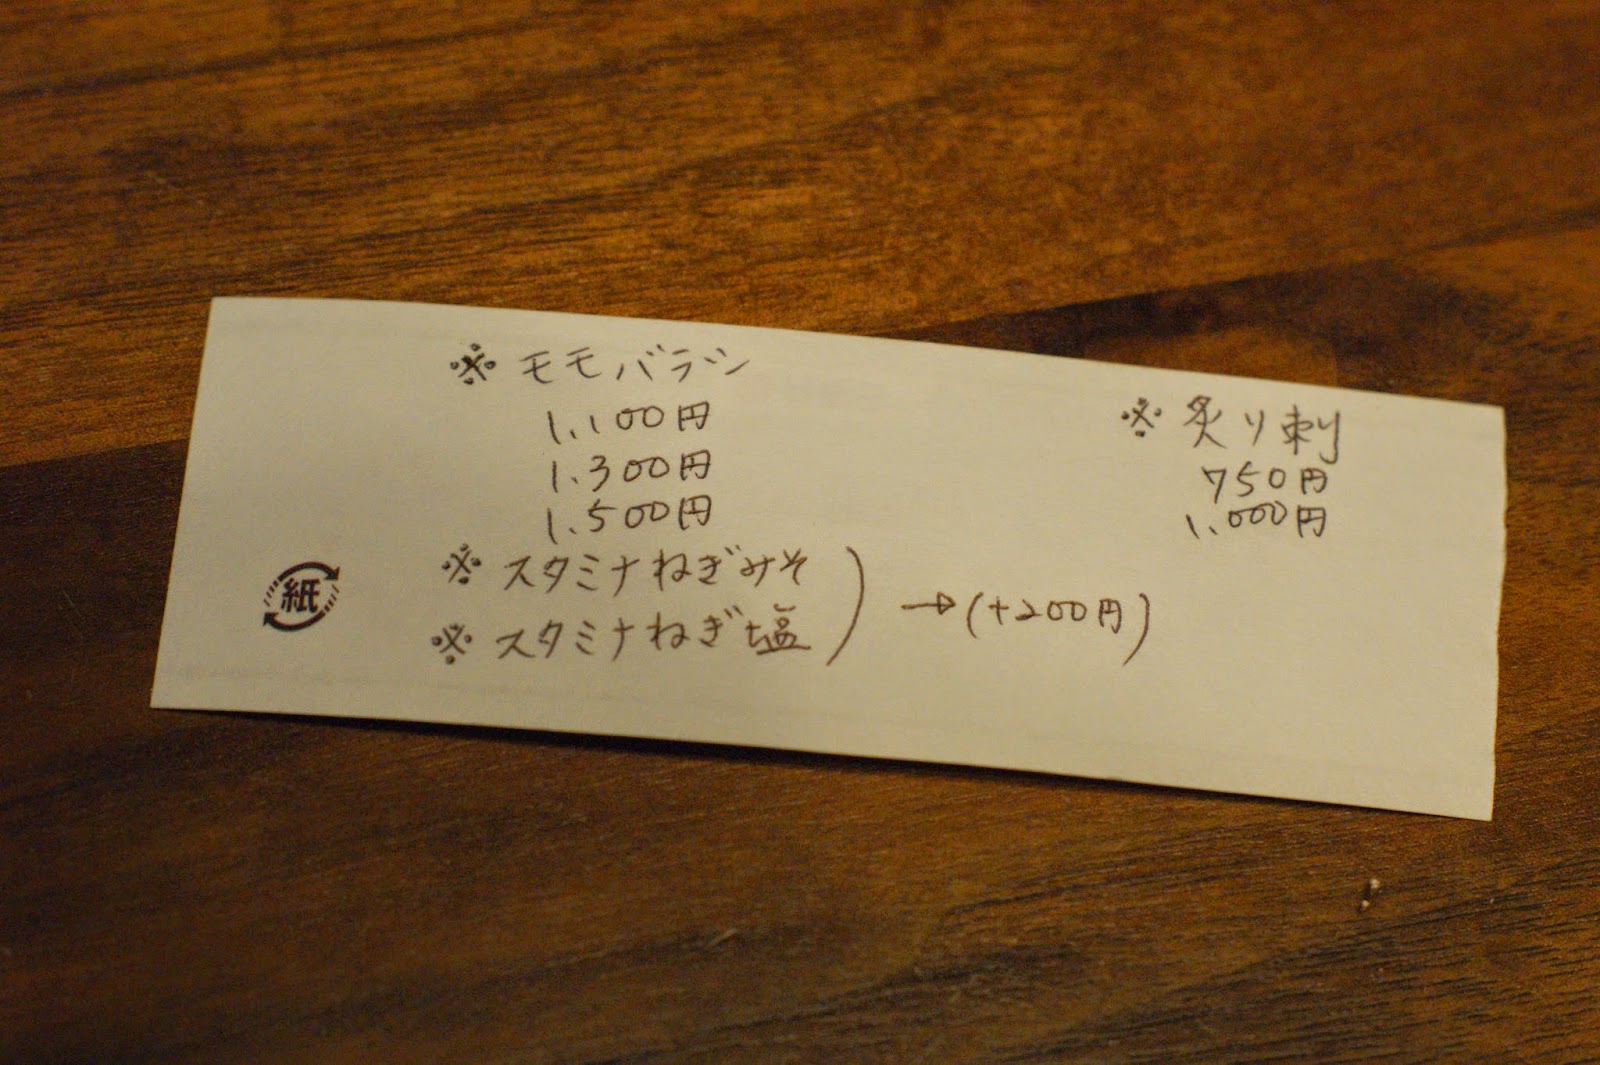 ※モモバラシ
1.100円
1.300円
1.500円
※スタミナねぎみそ
※スタミナねぎ塩
→(+200円)
※炙り刺
750円
1.000円
紙